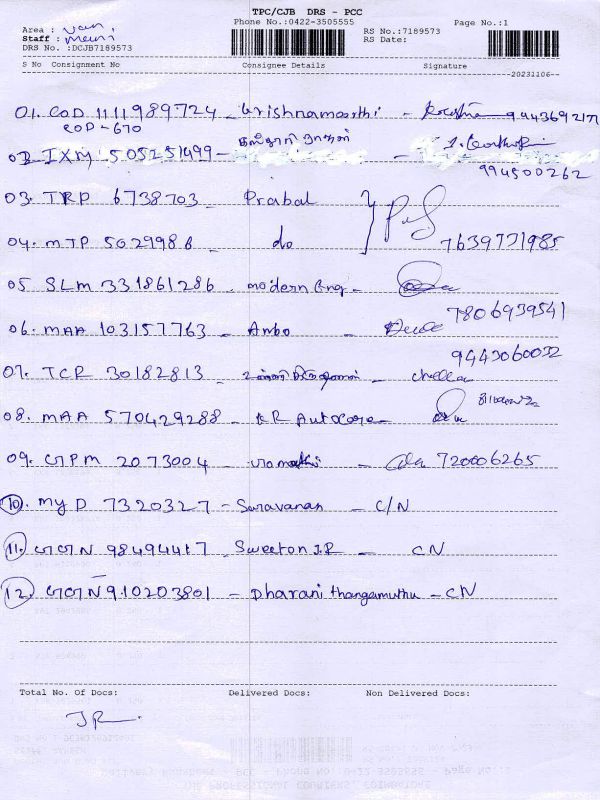 TPC/CJB DRS - PCC
Area : van
Phone No.:0422-3505555
Page No.:1
Staff : mani
RS No.:7189573
DRS No. :DCJB7189573
RS Date:
S No Consignment No Consignee Details Signature
20231106--
01. COD 1111989724 - Krishnamoorthi - 9443692171
COD-670
02. IXM 505251499 -
994500262
03. TRP 6738703 - Prabal
04. MTP 5029986 do 7639771985
05 SLM 331861286 - modern Eng -
7806939541
06. MAA 103157763 - Anbo -
9443060032
07. TCR 30182813 - - chella
08. MAA 570429288 - KR Autocare -
09. GPM 2073004 - - 720006265
10. MYD 7320327 - Saravanan - C/N
11. GGN 98494417 - Sweeton J.R - CN
12. GGN 910203801 - Dharani thangamuthu - CN
Total No. Of Docs: Delivered Docs: Non Delivered Docs: